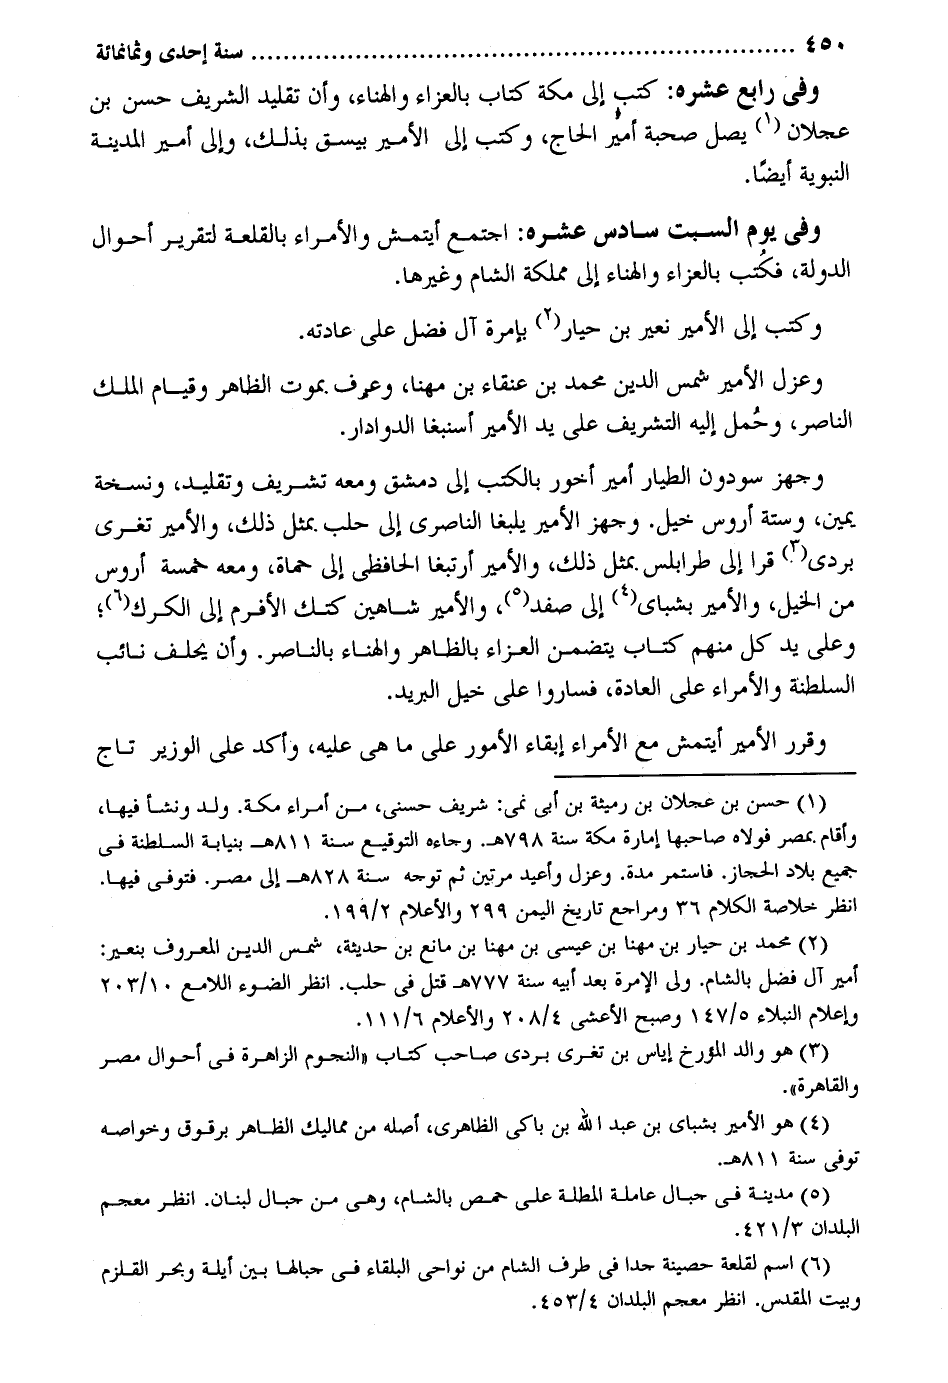 ٤٥٠ ........................................ سنة إحدى وثمانمائة
وفى رابع عشره: كتب إلى مكة كتاب بالعزاء والهناء، وأن تقليد الشريف حسن بن
عجلان (١) يصل صحبة أمير الحاج، وكتب إلى الأمير بيسق بذلك، وإلى أمير المدينة
النبوية أيضًا.
وفى يوم السبت سادس عشره: اجتمع أيتمش والأمراء بالقلعة لتقرير أحوال
الدولة، فكُتب بالعزاء والهناء إلى مملكة الشام وغيرها.
وكتب إلى الأمير نعير بن حيار(٢) بإمرة آل فضل على عادته.
وعزل الأمير شمس الدين محمد بن عنقاء بن مهنا، وعرف بموت الظاهر وقيام الملك
الناصر، وحُمل إليه التشريف على يد الأمير أسنبغا الدوادار.
وجهز سودون الطيار أمير أخور بالكتب إلى دمشق ومعه تشريف وتقليد، ونسخة
يمين، وستة أروس خيل. وجهز الأمير يلبغا الناصرى إلى حلب بمثل ذلك، والأمير تغرى
بردى(٣) قرا إلى طرابلس بمثل ذلك، والأمير أرتبغا الحافظى إلى حماة، ومعه خمسة أروس
من الخيل، والأمير بشباى(٤) إلى صفد(٥)، والأمير شاهين كتك الأفرم إلى الكرك(٦)؛
وعلى يد كل منهم كتاب يتضمن العزاء بالظاهر والهناء بالناصر. وأن يحلف نائب
السلطنة والأمراء على العادة، فساروا على خيل البريد.
وقرر الأمير أيتمش مع الأمراء إبقاء الأمور على ما هى عليه، وأكد على الوزير تاج
(١) حسن بن عجلان بن رميثة بن أبى نمى: شريف حسنى، من أمراء مكة. ولد ونشأ فيها،
وأقام بمصر فولاه صاحبها إمارة مكة سنة ٧٩٨هـ. وجاءه التوقيع سنة ٨١١هـ بنيابة السلطنة فى
جميع بلاد الحجاز. فاستمر مدة. وعزل وأعيد مرتين ثم توجه سنة ٨٢٨هـ إلى مصر. فتوفى فيها.
انظر خلاصة الكلام ٣٦ ومراجع تاريخ اليمن ٢٩٩ والأعلام ١٩٩/٢.
(٢) محمد بن حيار بن مهنا بن عيسى بن مهنا بن مانع بن حديثة، شمس الدين المعروف بنعير:
أمير آل فضل بالشام. ولى الإمرة بعد أبيه سنة ٧٧٧هـ قتل فى حلب. انظر الضوء اللامع ٢٠٣/١٠
وإعلام النبلاء ١٤٧/٥ وصبح الأعشى ٢٠٨/٤ والأعلام ١١١/٦.
(٣) هو والد المؤرخ إياس بن تغرى بردى صاحب كتاب «النجوم الزاهرة فى أحوال مصر
والقاهرة».
(٤) هو الأمير بشباى بن عبد الله بن باكى الظاهرى، أصله من مماليك الظاهر برقوق وخواصه
توفى سنة ٨١١هـ.
(٥) مدينة فى جبال عاملة المطلة على حمص بالشام، وهى من جبال لبنان. انظر معجم
البلدان ٤٢١/٣.
(٦) اسم لقلعة حصينة جدا فى طرف الشام من نواحى البلقاء فى جبالها بين أيلة وبحر القلزم
وبيت المقدس. انظر معجم البلدان ٤٥٣/٤.